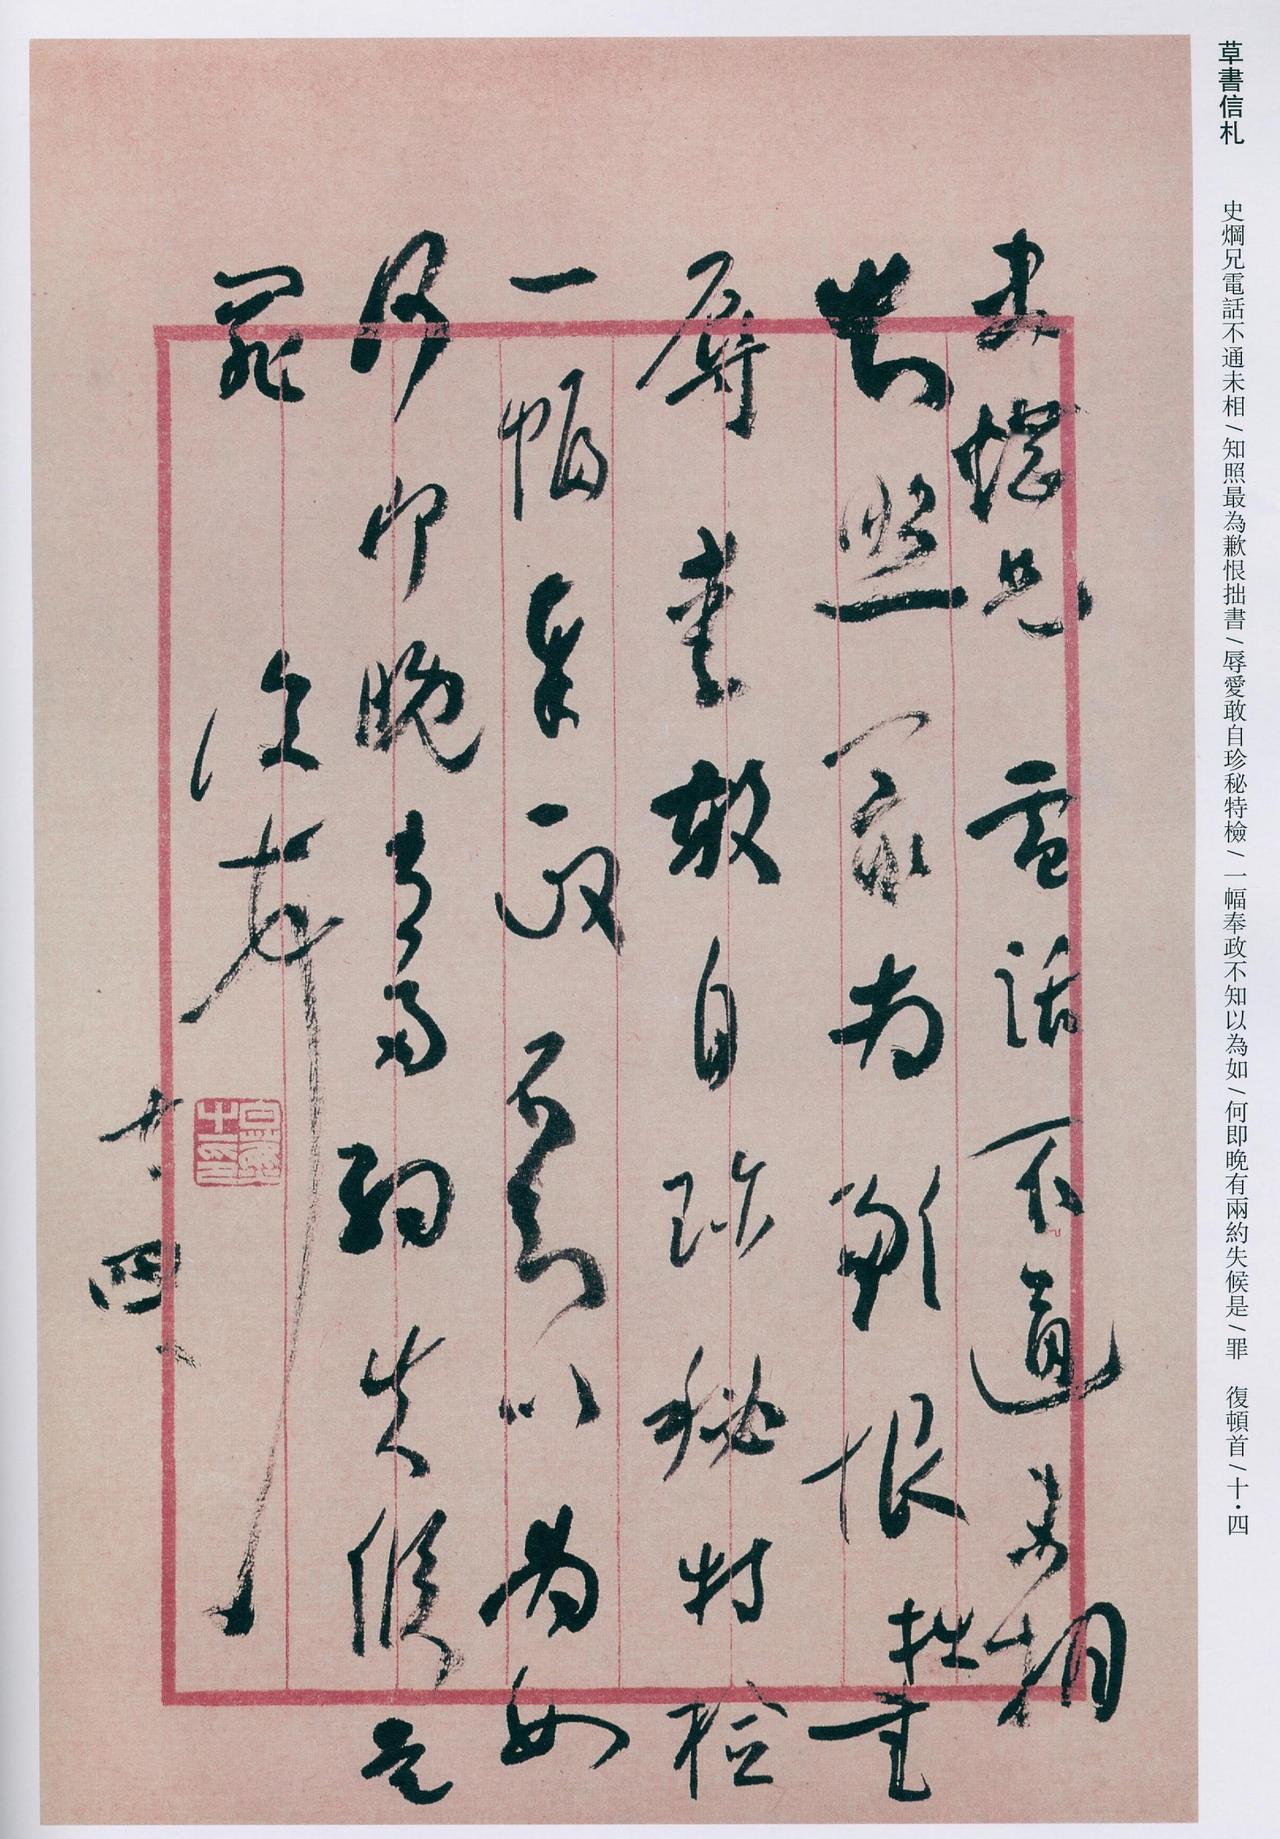 草書信札
史焵兄電話不通未相/知照最為歉恨拙書/辱愛敢自珍秘特檢/一幅奉政不知以為如/何即晚有兩約失候是/罪 復頓首/十·四
史焵兄 電話不通未相
知照最為歉恨拙書
辱愛敢自珍秘特檢
一幅奉政不知以為如
何即晚有兩約失候是
罪
復頓首
十·四